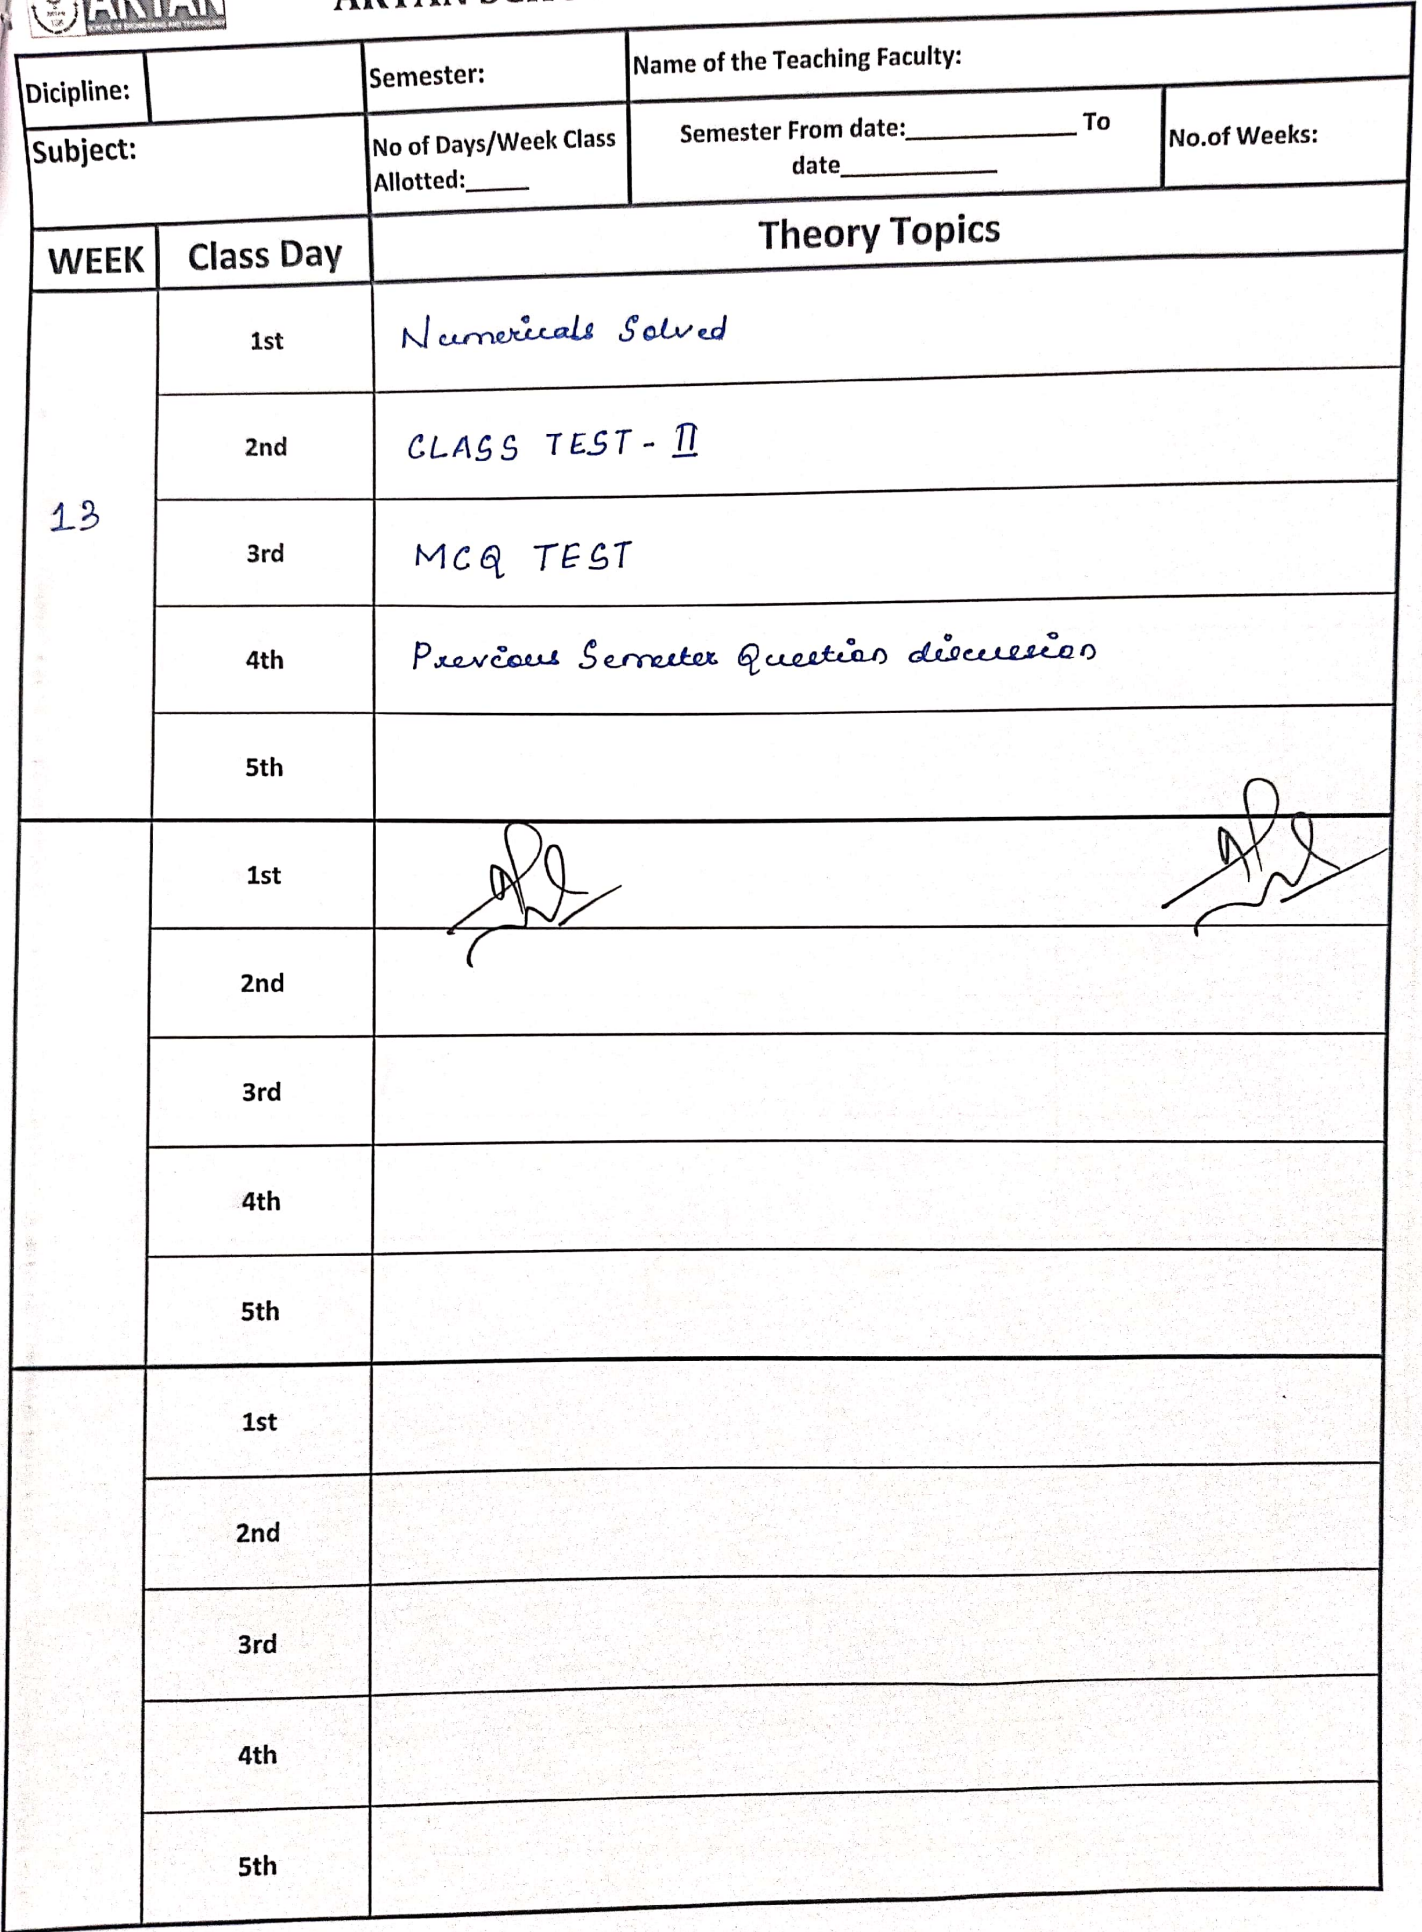 ARYAN
Dicipline:
Semester:
Name of the Teaching Faculty:
Subject:
No of Days/Week Class
Allotted:_____
Semester From date:______________ To
date_____________
No.of Weeks:
WEEK
Class Day
Theory Topics
13
1st
Numericals Solved
2nd
CLASS TEST - II
3rd
MCQ TEST
4th
Previous Semester Question discussion
5th
1st
2nd
3rd
4th
5th
1st
2nd
3rd
4th
5th